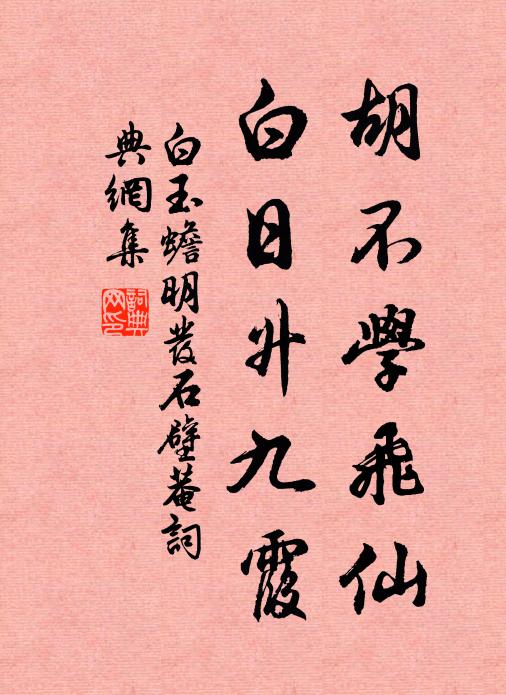 胡不學飛仙
白日升九霞
白玉蟾明發石壁菴詞
典網集
詞典網印